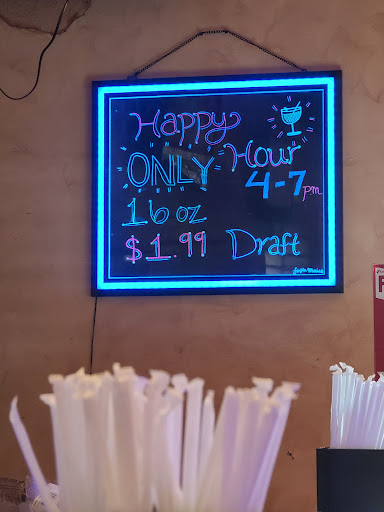 Happy
Hour
ONLY 4-7pm
16 oz
$1.99 Draft